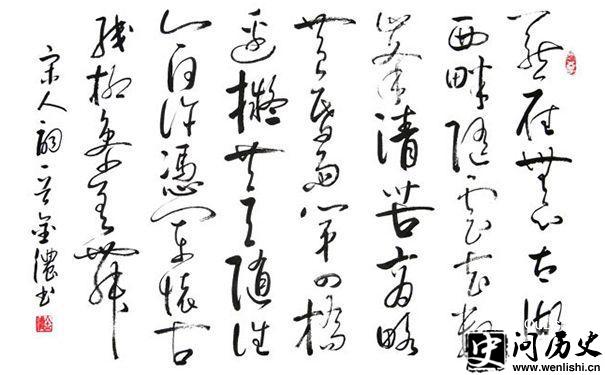 燕雁無心太湖
西畔隨雲去數
峰清苦商略
黄昏雨第四橋
邊擬共天隨住
今何许憑闌懷古
殘柳參差舞
宋人詞一首 书
史 问历史
www.wenlishi.cn